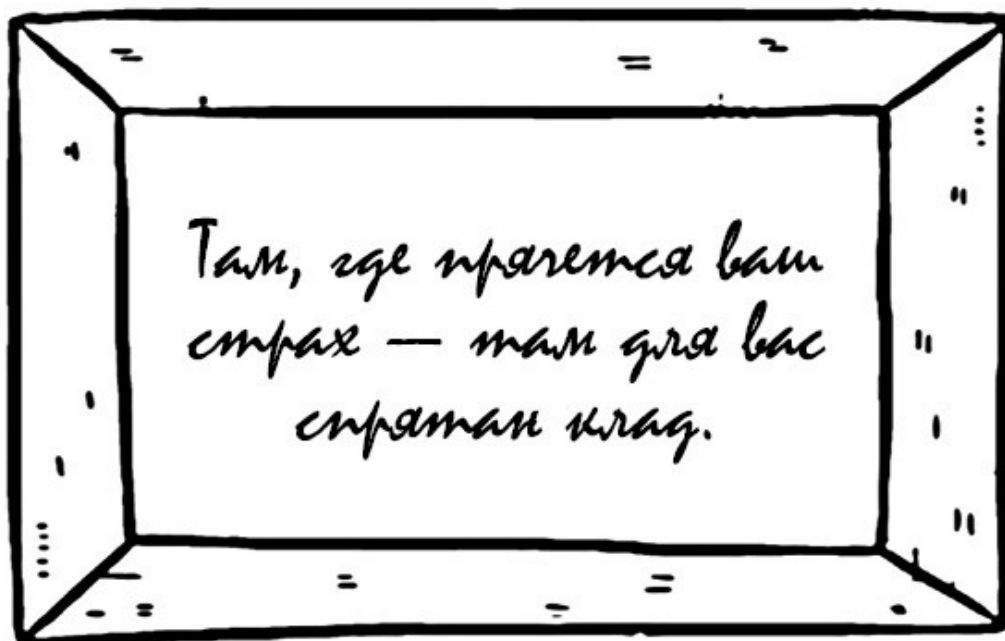 Там, где прячется ваш
страх — там для вас
спрятан клад.